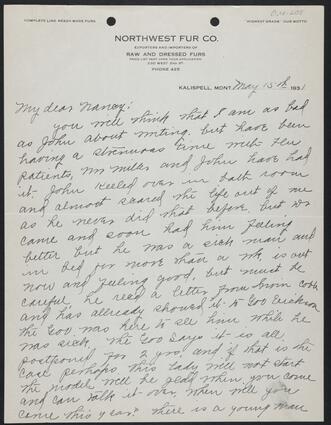 COMPLETE LINE READY MADE FURS
"HIGHEST GRADE" OUR MOTTO
NORTHWEST FUR CO.
EXPORTERS AND IMPORTERS OF
RAW AND DRESSED FURS
PRICE LIST SENT UPON YOUR APPLICATION
PHONE 425
KALISPELL, MONT. May 15th, 1931
My dear Nancy:
you will think that I am as bad
as John about writing. but have been
having a strenuous time with Flu
patients, Mr Miles and John have had
it. John keeled over in bath room
and almost scared the life out of me
as he never did that before, but Dr
came and soon had him feeling
better but he was a sick man and
in bed for more than a wk is out
now and feeling good, but must be
careful, he rec'd a letter from
and has allready showed it to Gov Erickson
the Gov was here to see him while he
was sick, the Gov says it is all
postponed for 2 yrs, and if that is the
case perhaps this Lady will not start
the model will be glad when you come
and can talk it over, when will you
come this year? there is a young man